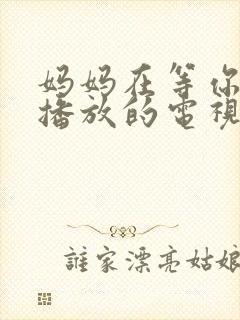 妈妈在等你
播放的電視
誰家漂亮姑娘